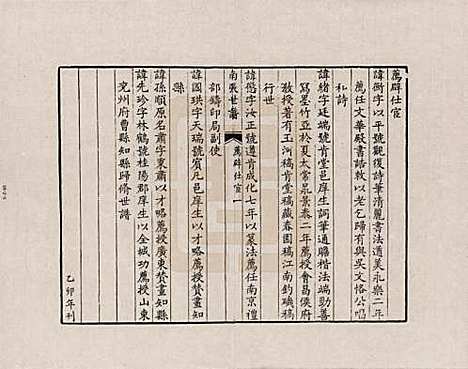 薦辟仕宦
諱衡字以平號觀復詩筆清麗書法遒美永樂二年
薦任文華殿書誥敕以老乞歸有與吳文恪公唱
和詩
諱緒字廷端號肯堂邑庠生詞筆通贍楷法端勁善
寫墨竹亞於夏太常㫤景泰二年薦授會昌侯府
教授著有玉河稿肯堂稿藏春園稿江南釣磯稿
行世
諱愻字汝正號遵肯成化七年以篆法薦任南京禮
部鑄印局副使
南張世譜 薦辟仕宦 一
諱國珙字天瑞號賓凡邑庠生以才略薦授贊畫知
縣
諱孫順原名肅字東肅以才略薦授廣東贊畫知縣
諱先珍字林鶴號桂陽郡庠生以全城功薦授山東
兗州府曹縣知縣歸脩世譜
乙卯年刊